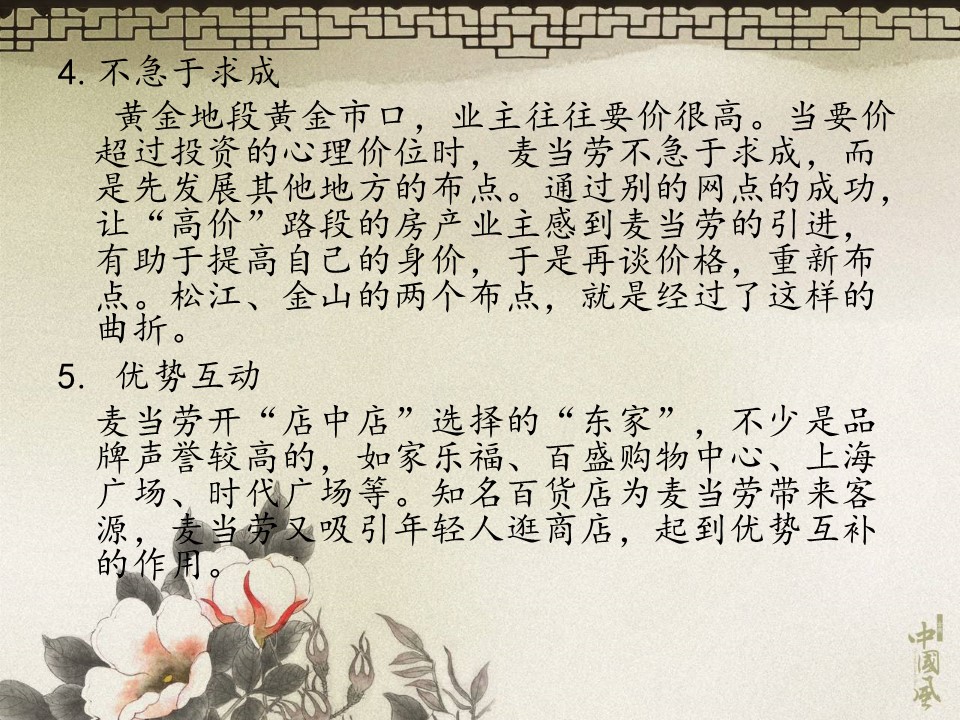 4. 不急于求成
黄金地段黄金市口，业主往往要价很高。当要价
超过投资的心理价位时，麦当劳不急于求成，而
是先发展其他地方的布点。通过别的网点的成功，
让“高价”路段的房产业主感到麦当劳的引进，
有助于提高自己的身价，于是再谈价格，重新布
点。松江、金山的两个布点，就是经过了这样的
曲折。
5. 优势互动
麦当劳开“店中店”选择的“东家”，不少是品
牌声誉较高的，如家乐福、百盛购物中心、上海
广场、时代广场等。知名百货店为麦当劳带来客
源，麦当劳又吸引年轻人逛商店，起到优势互补
的作用。
中國风